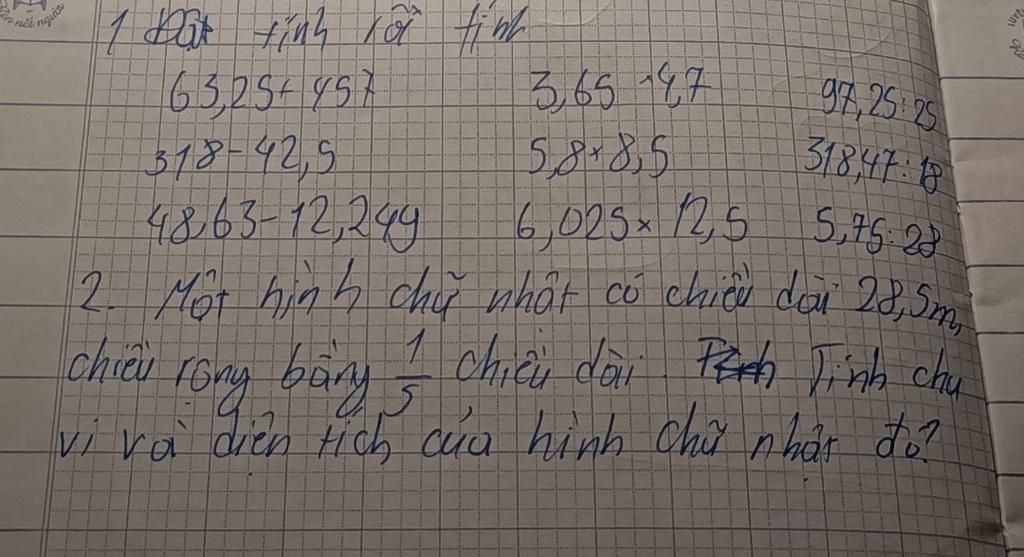 1 Đặt tính rồi tính
63,25 + 457 3,65 × 4,7 97,25 : 25
318 - 42,5 5,8 × 8,5 318,47 : 18
48,63 - 12,249 6,025 × 12,5 5,75 : 28
2. Một hình chữ nhật có chiều dài 28,5m,
chiều rộng bằng 1/5 chiều dài. Tính chu
vi và diện tích của hình chữ nhật đó?